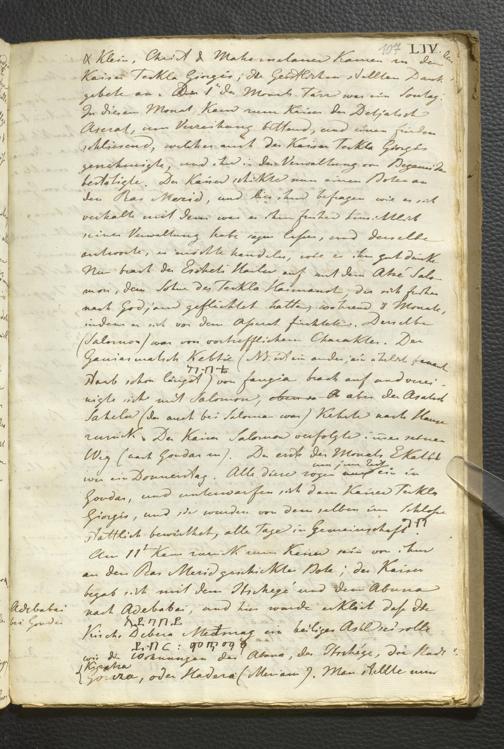 107 LIV.
& Klein, Christ & Mahomedaner kamen zu dem
Kaiser Tekla Giorgis; die Geistlichen stellten Dank
gebete an. Den 1t des Monats Tarr war ein Sontag.
In diesem Monat kam zum Kaiser der Detjatsch
Aserat, um Verzeihung bittend, und einen Frieden
schliessend, welchen auch der Kaiser Tekla Giorgis
genehmigte, und ihn in der Verwaltung von Begemeder
bestätigte. Der Kaiser schikte nun einen Boten an
den Ras Merid, und liess ihn befragen wie es sich
verhalte mit dem was er ihm früher hinsichtlich
seiner Verwaltung habe sagen lassen, und derselbe
antworte, er möchte handeln, wie es ihn gut dünke
Nun brach der Hailu auf mit dem Atse Salo-
mon, dem Sohn des Tekla Haimanot, der sich früher
nach Godjam geflüchtet hatte, während 8 Monate,
indem er sich vor dem Aserat fürchtete. Derselbe
(Salomon) war von vortrefflichem Charakter. Der
Kebtié (NB. ist ein ander, ein
starb schon längst) von fangia brach auf und verei-
ከብቴ
nigte sich mit Salomon, aber der Asalef
Sahelu (der auch bei Salomon war) kehrte nach Hause
zurück. Der Kaiser Salomon verfolgte immer seinen
Weg (nach Gondar zu). Der erste des Monats
war ein Donnerstag. Alle diese zogen nun ein in
zu jener Zeit
Gondar, und unterwarfen sich dem Kaiser Tekla
Giorgis, und sie wurden von demselben im Schlosse
stattlich bewirthet, alle Tage in Gemeinschaft
Am 11t kam zurück zum Kaiser sein von ihm
an den Ras Merid geschickter Bote; der Kaiser
begab sich mit dem Itschegé und dem Abuna
Adebabai
bei Gondar
nach Adebabai, und hier wurde erklärt dass die
አደባባይ
Kirche Debera Metmag ein heiliges Asyl sei sollte
ደብር : ምጥማቅ
wie die Wohnungen des Abuna, des Itschege, die Kirche
Gouza, oder Hadera (Meriam). Man stellte nun